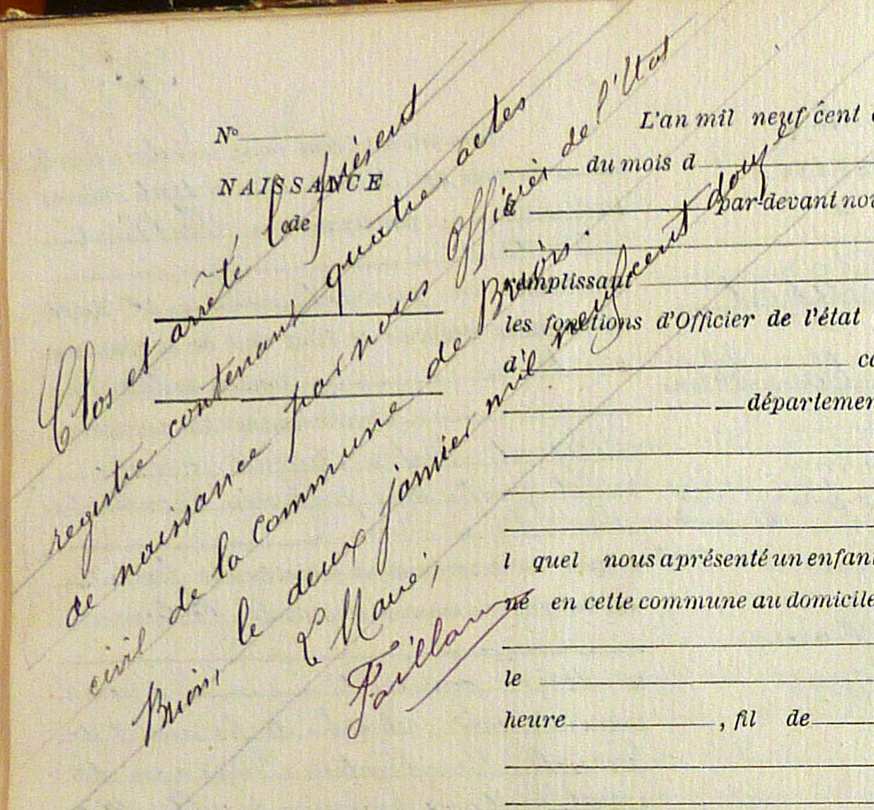 N°
NAISSANCE
de
Clos et arrêté le présent
registre contenant quatre actes
de naissance par nous officier de l'Etat
civil de la commune de Briois.
le deux janvier mil neuf cent douze
Le Maire,
L'an mil neuf cent
du mois d
à par-devant nou
remplissant
les fonctions d'Officier de l'état
d' co
département
l quel nous a présenté un enfant
né en cette commune au domicile
le
heure , fil de